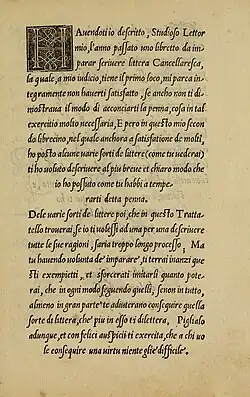 HAuendoti io descritto, Studioso Lettor
mio, l'anno passato uno libretto da im-
parar scriuere littera Cancellaresca,
la quale, a mio iudicio, tiene il primo loco, mi parea in-
tegramente non hauerti satisfatto, se ancho non ti di-
mostraua il modo di acconciarti la penna, cosa in tal
exercitio molto necessaria, E pero in questo mio secon-
do librecino, nel quale anchora a satisfatione de molti,
ho posto alcune uarie sorti de lettere (come tu uederai)
ti ho uoluto descriuere al piu breue et chiaro modo che
io ho possuto come tu habbi a tempe-
rarti detta penna.
De le uarie sorti de littere poi, che in questo Tratta-
tello trouerai, se io ti uolessi ad una per una descriuere
tutte le sue ragioni, saria troppo longo processo, Ma
tu hauendo uolunta de imparare, ti terrai inanzi que-
sti exempietti, et sforcerati imitarli quanto pote-
rai, che in ogni modo seguendo quelli, se non in tutto,
almeno in gran parte te adiuterano conseguire quella
sorte di littera, che piu in esso ti dilettera, Piglialo
adunque, et con felici auspicii ti exercita, che a chi uo
le conseguire una uirtu niente glie difficile.